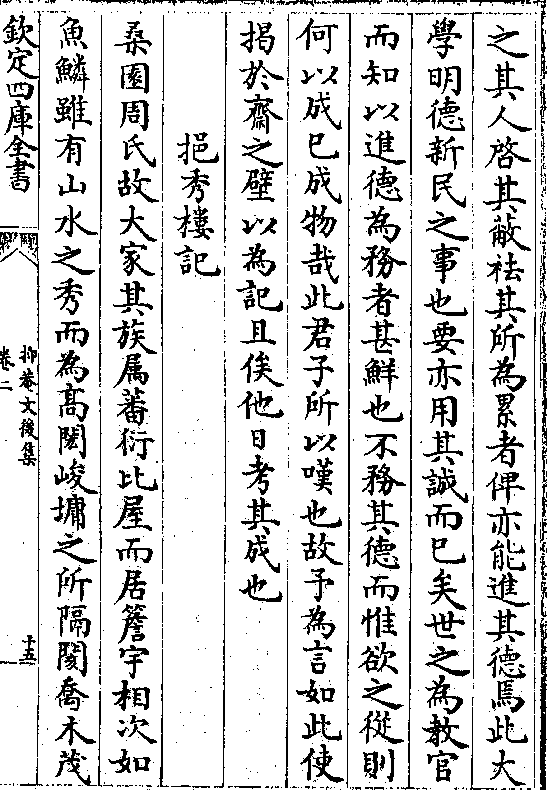 之其人啓其蔽祛其所為累者俾亦能進其德焉此大
學明德新民之事也要亦用其誠而已矣世之為教官
而知以進德為務者甚鮮也不務其德而惟欲之從則
何以成已成物哉此君子所以嘆也故予為言如此使
揭於齋之壁以為記且俟他日考其成也
挹秀樓記
桑園周氏故大家其族属蕃衍比屋而居簷宇相次如
魚鱗雖有山水之秀而為高閎峻墉之所隔閡喬木茂
欽定四庫全書
抑菴文後集
卷二
十五